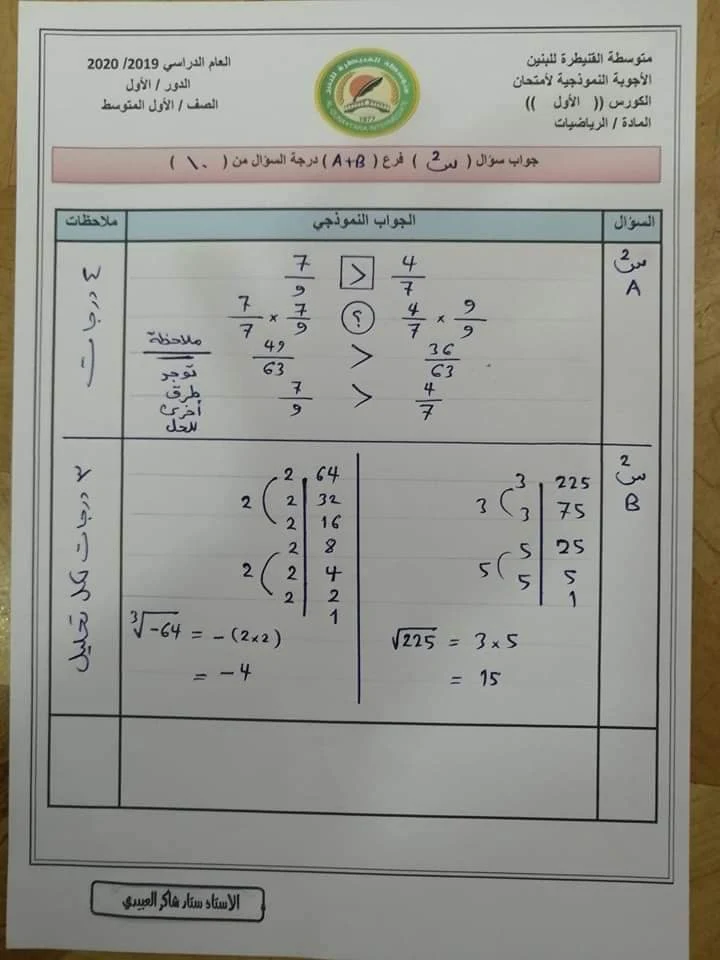 متوسطة القنيطرة للبنين
الأجوبة النموذجية لأمتحان
الكورس (( الأول ))
المادة / الرياضيات
متوسطة القنيطرة للبنين
1977
العام الدراسي 2019/ 2020
الدور / الأول
الصف / الأول المتوسط
جواب سؤال ( س2 ) فرع ( A+B ) درجة السؤال من ( ١٠ )
السؤال الجواب النموذجي ملاحظات
س2
A
7/9 > 4/7
7/7 × 7/9 ؟ 4/7 × 9/9
49/63 > 36/63
7/9 > 4/7
ملاحظة
توجد
طرق
أخرى
للحل
٤ درجات
س2
B
3 | 225
3 | 75
5 | 25
5 | 5
1
3
5
√225 = 3 × 5
= 15
2 | 64
2 | 32
2 | 16
2 | 8
2 | 4
2 | 2
1
2
2
∛-64 = - (2×2)
= - 4
٣ درجات لكل تحليل
الاستاذ ستار شاكر العبيدي